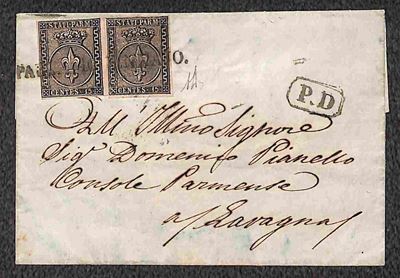 STATI PARM. STATI PARM.
CENTES. 15 CENTES. 15
PA O.
P.D
All' Illmo Signore
Sigr Domenico Pianello
Console Parmense
a Lavagna